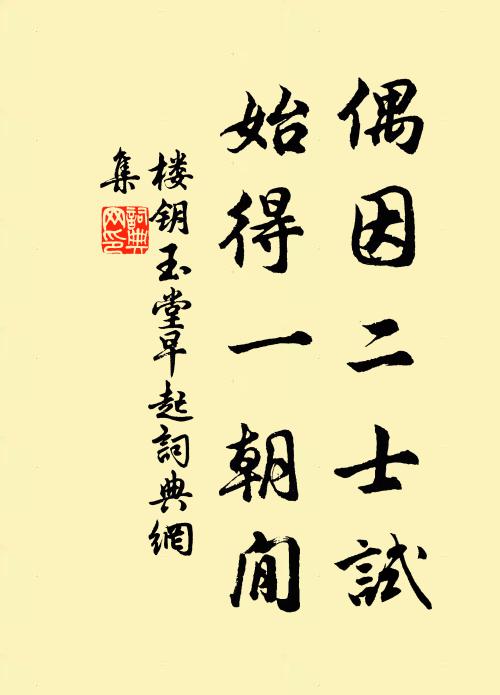 偶因二士試
始得一朝閒
楼钥玉堂早起詞典網
集
詞典
网印